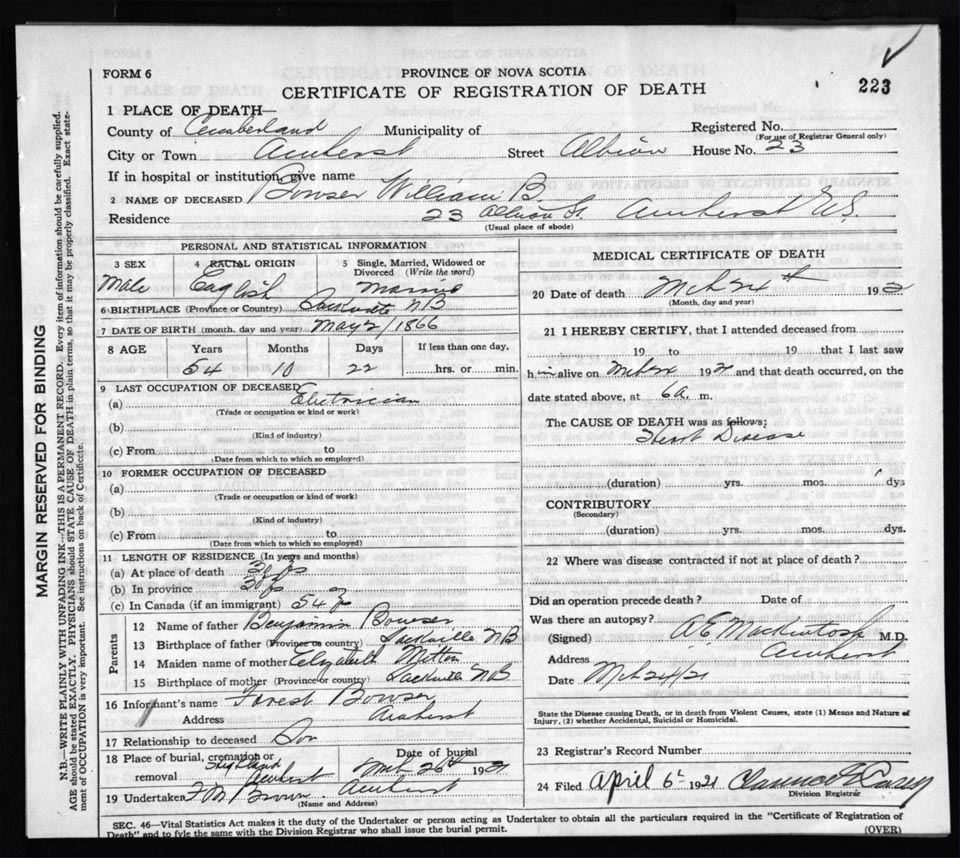 FORM 6
PROVINCE OF NOVA SCOTIA
CERTIFICATE OF REGISTRATION OF DEATH
223
1 PLACE OF DEATH—
County of Cumberland Municipality of Registered No.
(For use of Registrar General only)
City or Town Amherst Street Albion House No. 23
If in hospital or institution, give name
2 NAME OF DECEASED Bowser William B.
Residence 23 Albion St. Amherst N.S.
(Usual place of abode)
MARGIN RESERVED FOR BINDING
N.B.—WRITE PLAINLY WITH UNFADING INK—THIS IS A PERMANENT RECORD. Every item of information should be carefully supplied.
AGE should be stated EXACTLY. PHYSICIANS should STATE CAUSE OF DEATH in plain terms, so that it may be properly classified. Exact state-
ment of OCCUPATION is very important. See instructions on back of Certificate.
PERSONAL AND STATISTICAL INFORMATION
3 SEX 4 RACIAL ORIGIN 5 Single, Married, Widowed or
Divorced (Write the word)
Male English Married
6 BIRTHPLACE (Province or Country) Sackville NB
7 DATE OF BIRTH (month, day and year) May 2/1866
8 AGE Years Months Days If less than one day,
54 10 22 hrs. or min.
9 LAST OCCUPATION OF DECEASED
(a) Electrician
(Trade or occupation or kind or work)
(b)
(Kind of industry)
(c) From to
(Date from which to which so employed)
10 FORMER OCCUPATION OF DECEASED
(a)
(Trade or occupation or kind of work)
(b)
(Kind of industry)
(c) From to
(Date from which to which so employed)
11 LENGTH OF RESIDENCE (In years and months)
(a) At place of death
(b) In province
(c) In Canada (if an immigrant) 54
Parents
12 Name of father Benjamin Bowser
13 Birthplace of father (Province or country) Sackville NB
14 Maiden name of mother Elizabeth Mitton
15 Birthplace of mother (Province or country) Sackville NB
16 Informant's name Forest Bowser
Address Amherst
17 Relationship to deceased Son
18 Place of burial, cremation or Date of burial
removal Highland Amherst Mch 26th 1921
19 Undertaker F.M. Brown. Amherst
(Name and Address)
MEDICAL CERTIFICATE OF DEATH
20 Date of death Mch 24th 192
(Month, day and year)
21 I HEREBY CERTIFY, that I attended deceased from
19 to 19 that I last saw
him alive on Mch 24 1921 and that death occurred, on the
date stated above, at 6 a. m.
The CAUSE OF DEATH was as follows:
Heart Disease
(duration) yrs. mos. dys
CONTRIBUTORY
(Secondary)
(duration) yrs. mos. dys.
22 Where was disease contracted if not at place of death?
Did an operation precede death? Date of
Was there an autopsy?
(Signed) A E Mackintosh M.D.
Address Amherst
Date Mch 24/21
State the Disease causing Death, or in death from Violent Causes, state (1) Means and Nature of
Injury, (2) whether Accidental, Suicidal or Homicidal.
23 Registrar's Record Number
24 Filed April 6th 1921 Clarence E Casey
Division Registrar
SEC. 46—Vital Statistics Act makes it the duty of the Undertaker or person acting as Undertaker to obtain all the particulars required in the "Certificate of Registration of
Death" and to fyle the same with the Division Registrar who shall issue the burial permit.
(OVER)